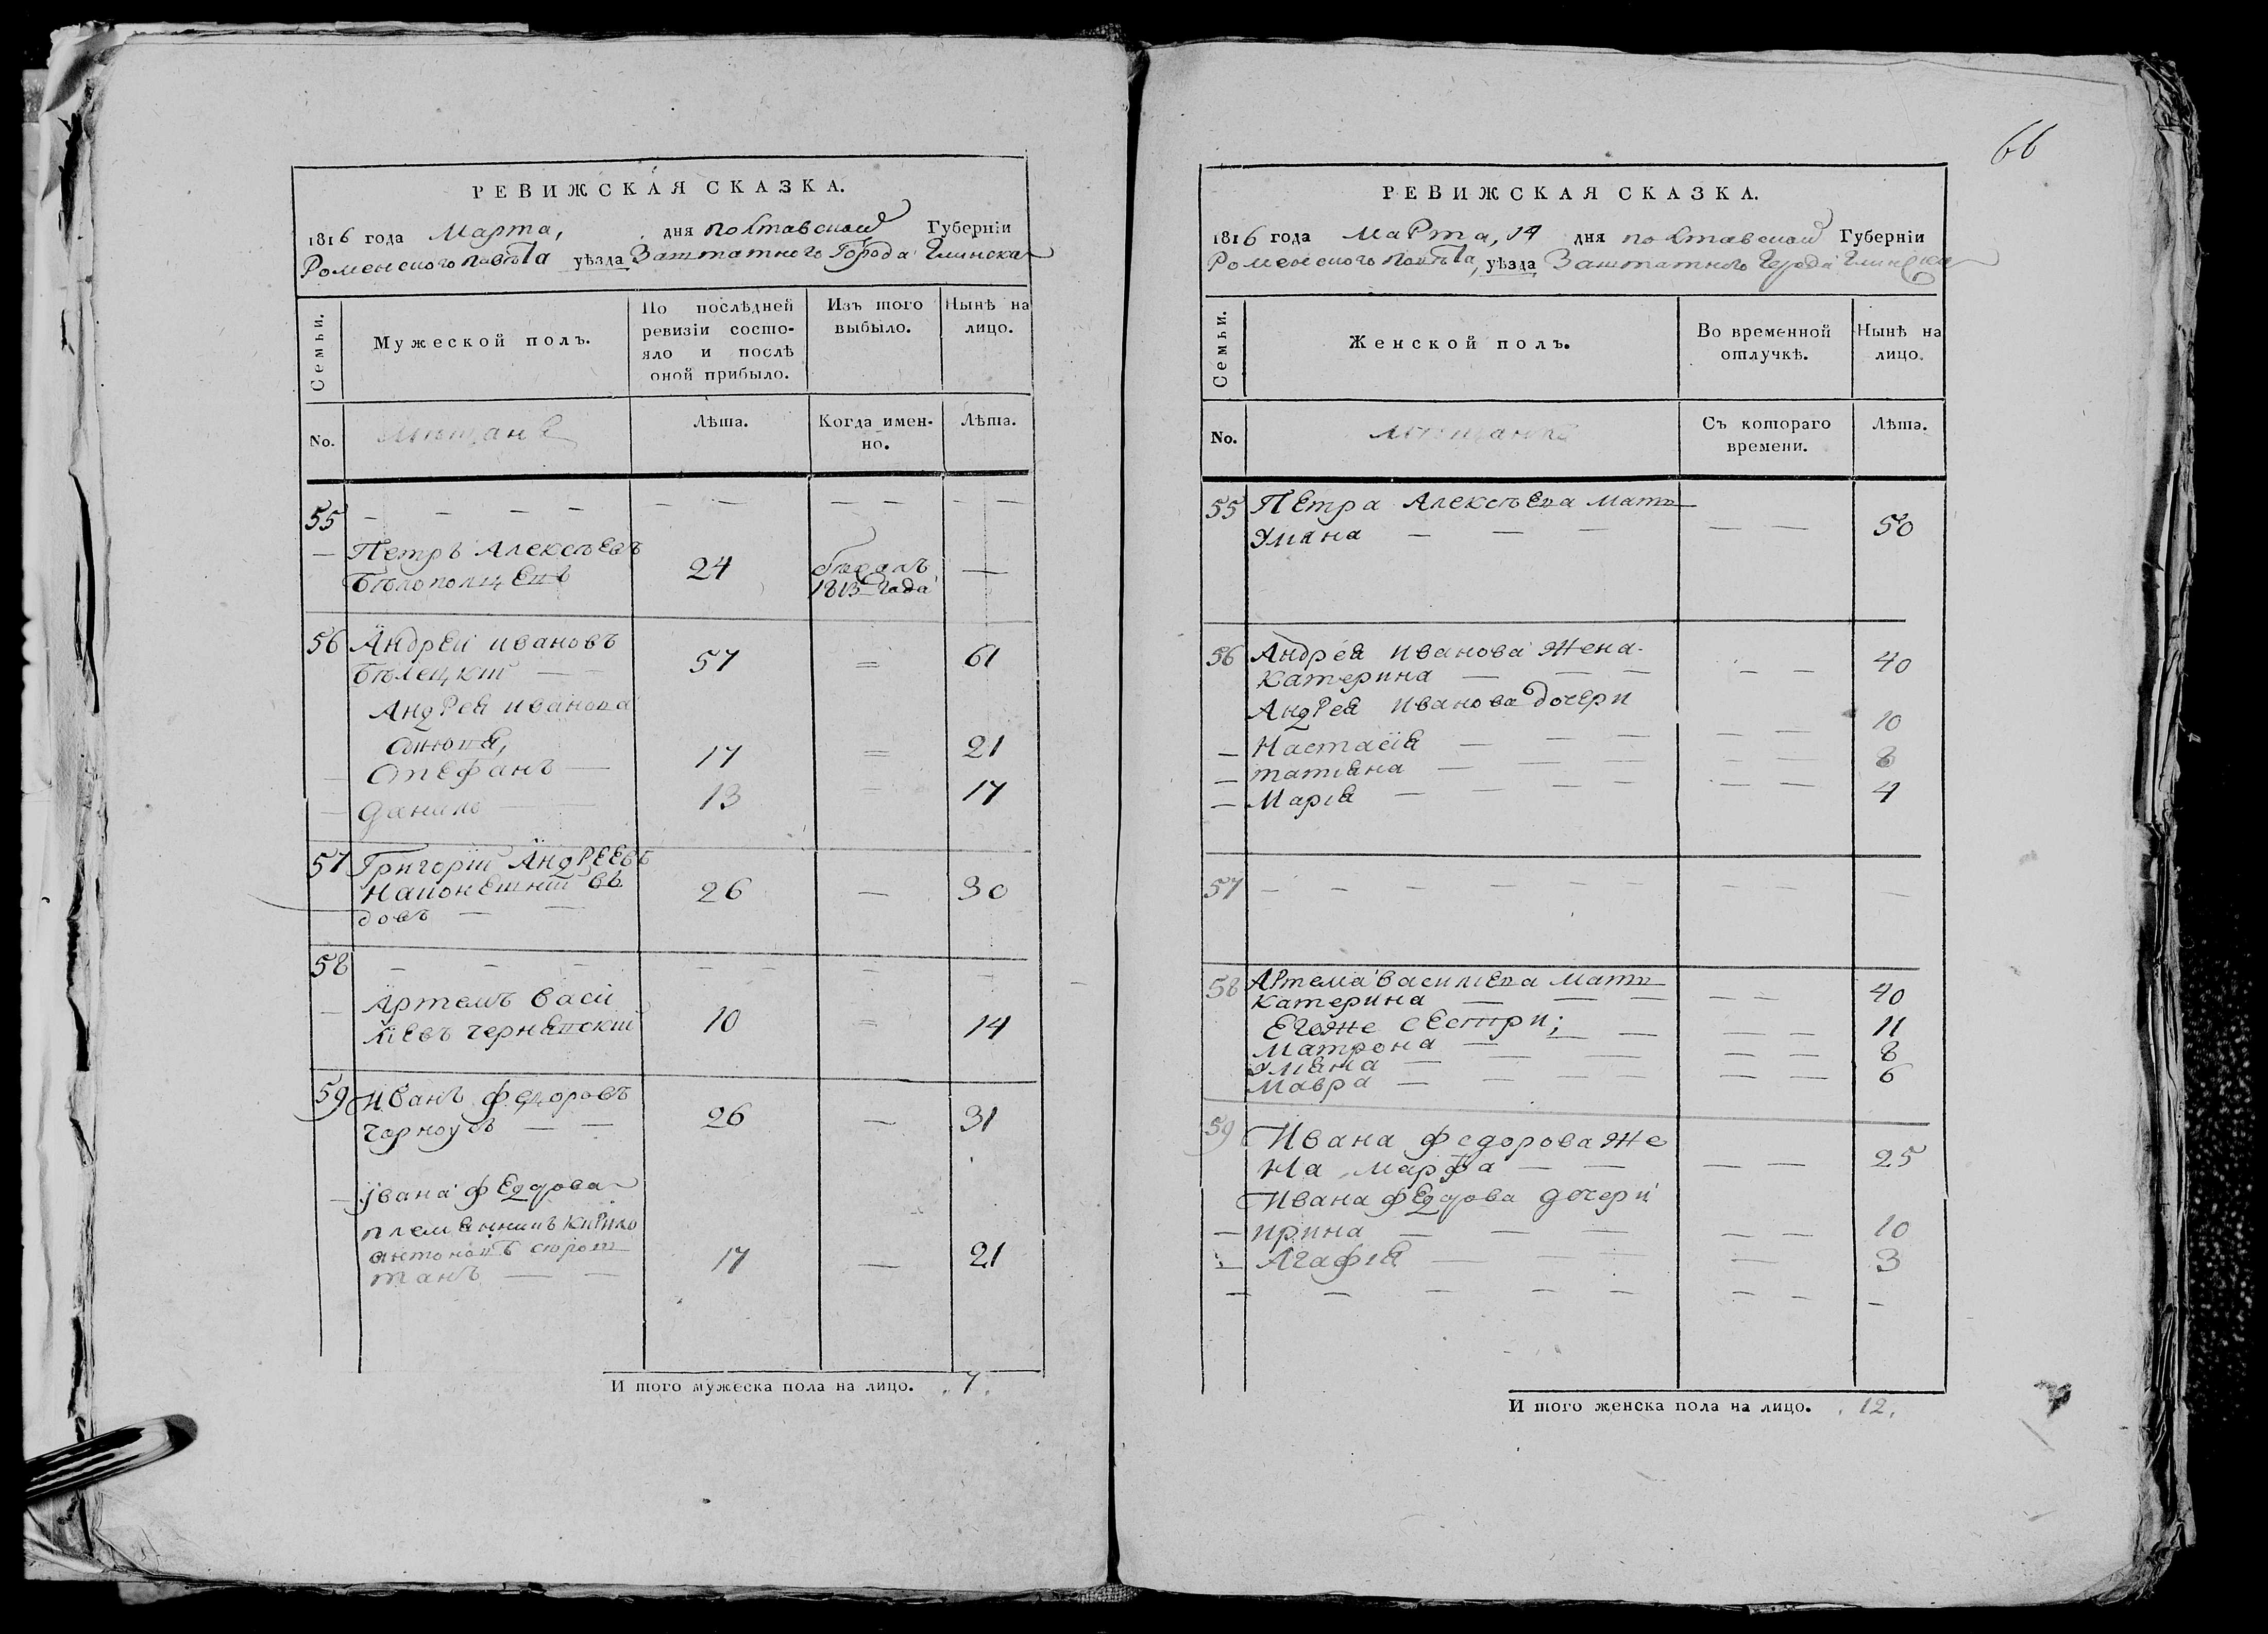 РЕВИЖСКАЯ СКАЗКА.
1816 года Марта, дня полтавской Губерніи
Роменского повѣта уѣзда Заштатного Города Глинска
Семьи.
Мужеской полъ.
По послѣдней
ревизіи состо-
яло и послѣ
оной прибыло.
Изъ того
выбыло.
Нынѣ на
лицо.
No.
мѣщане
Лѣта.
Когда имен-
но.
Лѣта.
55
Петръ Алексѣевъ
24
1813 года
56 Андрей ивановъ
Бѣлецкій
57 = 61
Андрея иванова
Стефанъ 17 = 21
данило 13 = 17
57 Григорій Андреевъ
26 — 30
довъ
58
Артемъ васи
лїевъ
10 = 14
59 Иванъ федоровъ
Чорноусъ
26 — 31
івана федорова
племянникъ кирило
танъ 17 — 21
И того мужеска пола на лицо. 7.
66
РЕВИЖСКАЯ СКАЗКА.
1816 года Марта, 14 дня полтавской Губерніи
Роменского повѣта, уѣзда Заштатного Города Глинска
Семьи.
Женской полъ.
Во временной
отлучкѣ.
Нынѣ на
лицо.
No.
мѣщанки
Съ котораго
времени.
Лѣта.
55 Петра Алексѣева мать
Уляна 50
56 Андрея иванова жена
катерина 40
Андрея иванова дочери
Настасїя 10
татіяна 8
Марія 4
57
58 Артема василіева мать
катерина 40
Егоже сестри;
Матрона 11
Уляна 8
Мавра 6
59 Ивана федорова же
на марфа 25
Ивана федорова дочери
ирина 10
Агафія 3
И того женска пола на лицо. 12.